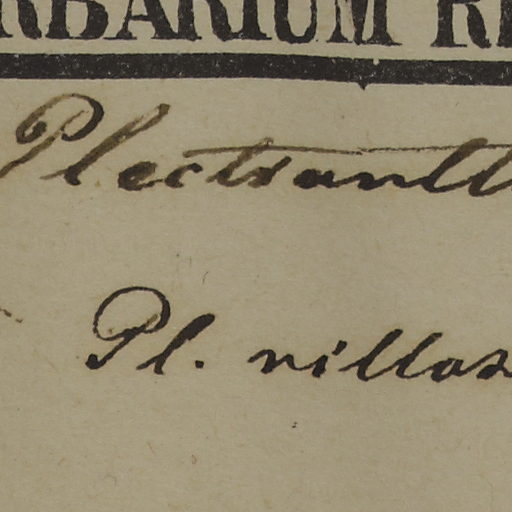 RBARIUM RE
Plectranth
Pl. villos